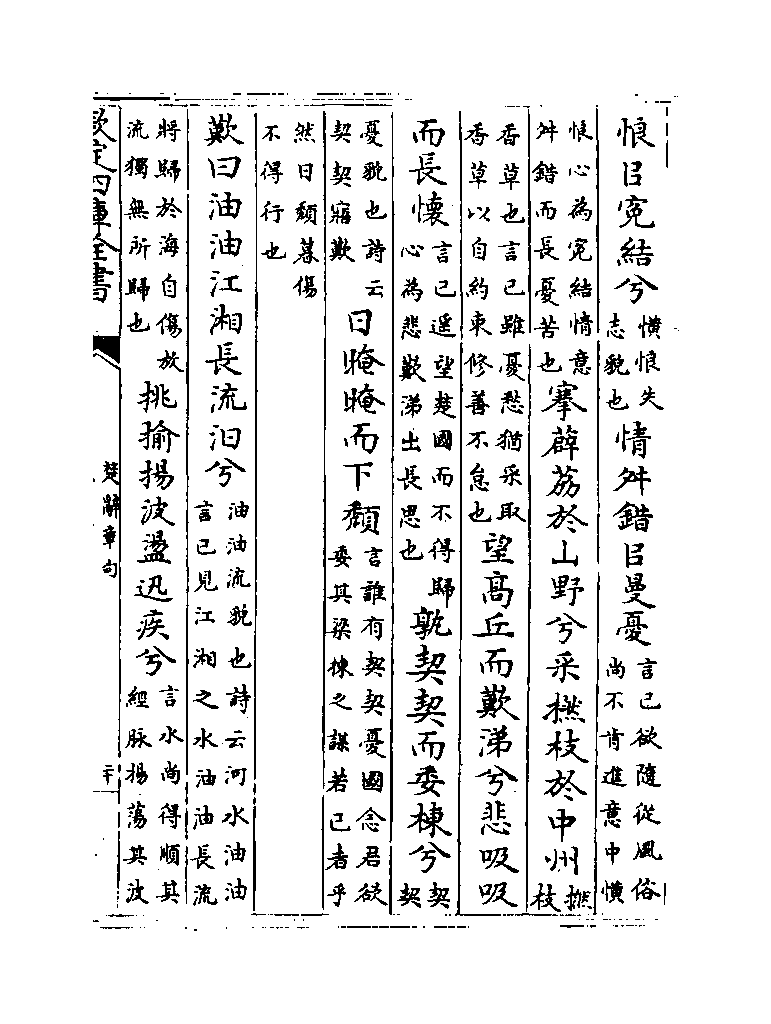 悢㠯寃結兮懭悢失志貌也情舛錯㠯曼憂言已欲隨從風俗尚不肯進意中懭
悢心為寃結情意舛錯而長憂苦也搴薜荔於山野兮采撚枝於中州撚枝
香草也言已雖憂愁猶采取香草以自約束修善不怠也望髙丘而歎涕兮悲吸吸
而長懐言已遥望楚國而不得歸心為悲歎涕出長思也孰契契而委棟兮契契
憂貌也詩云契契寤歎日晻晻而下頽言誰有契契憂國念君欲委其梁棟之謀若已者乎
然日頽暮傷不得行也
歎曰油油江湘長流汩兮油油流貌也詩云河水油油言已見江湘之水油油長流
將歸於海自傷放流獨無所歸也挑揄揚波盪迅疾兮言水尚得順其經脉揚蕩其波
欽定四庫全書
楚辭章句
二十